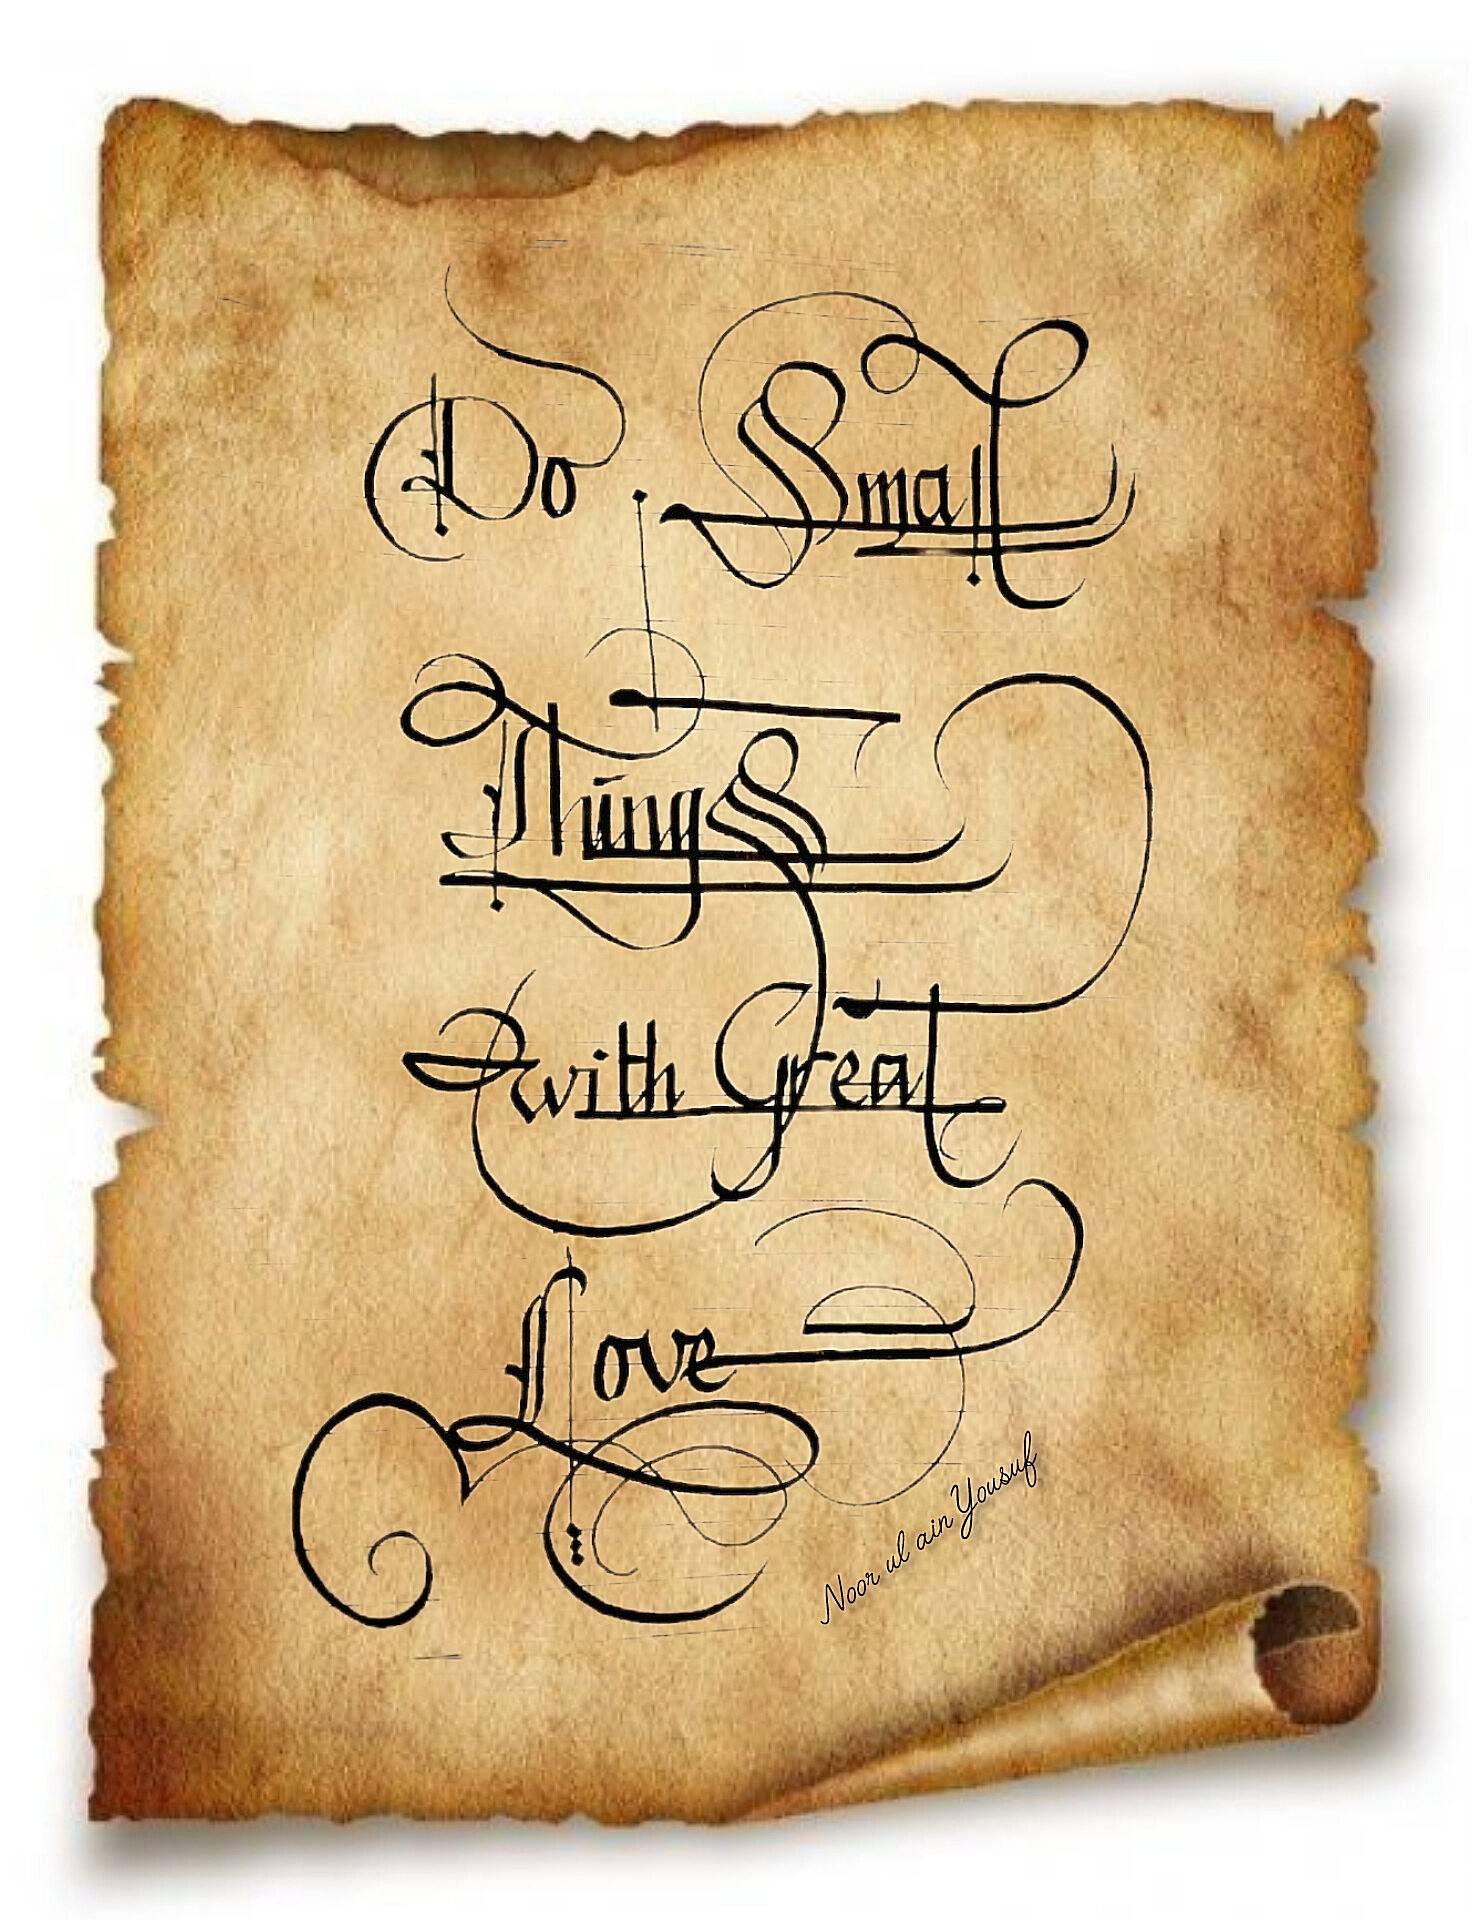 Do Small
Things
with Great
Love
Noor ul ain Yousuf